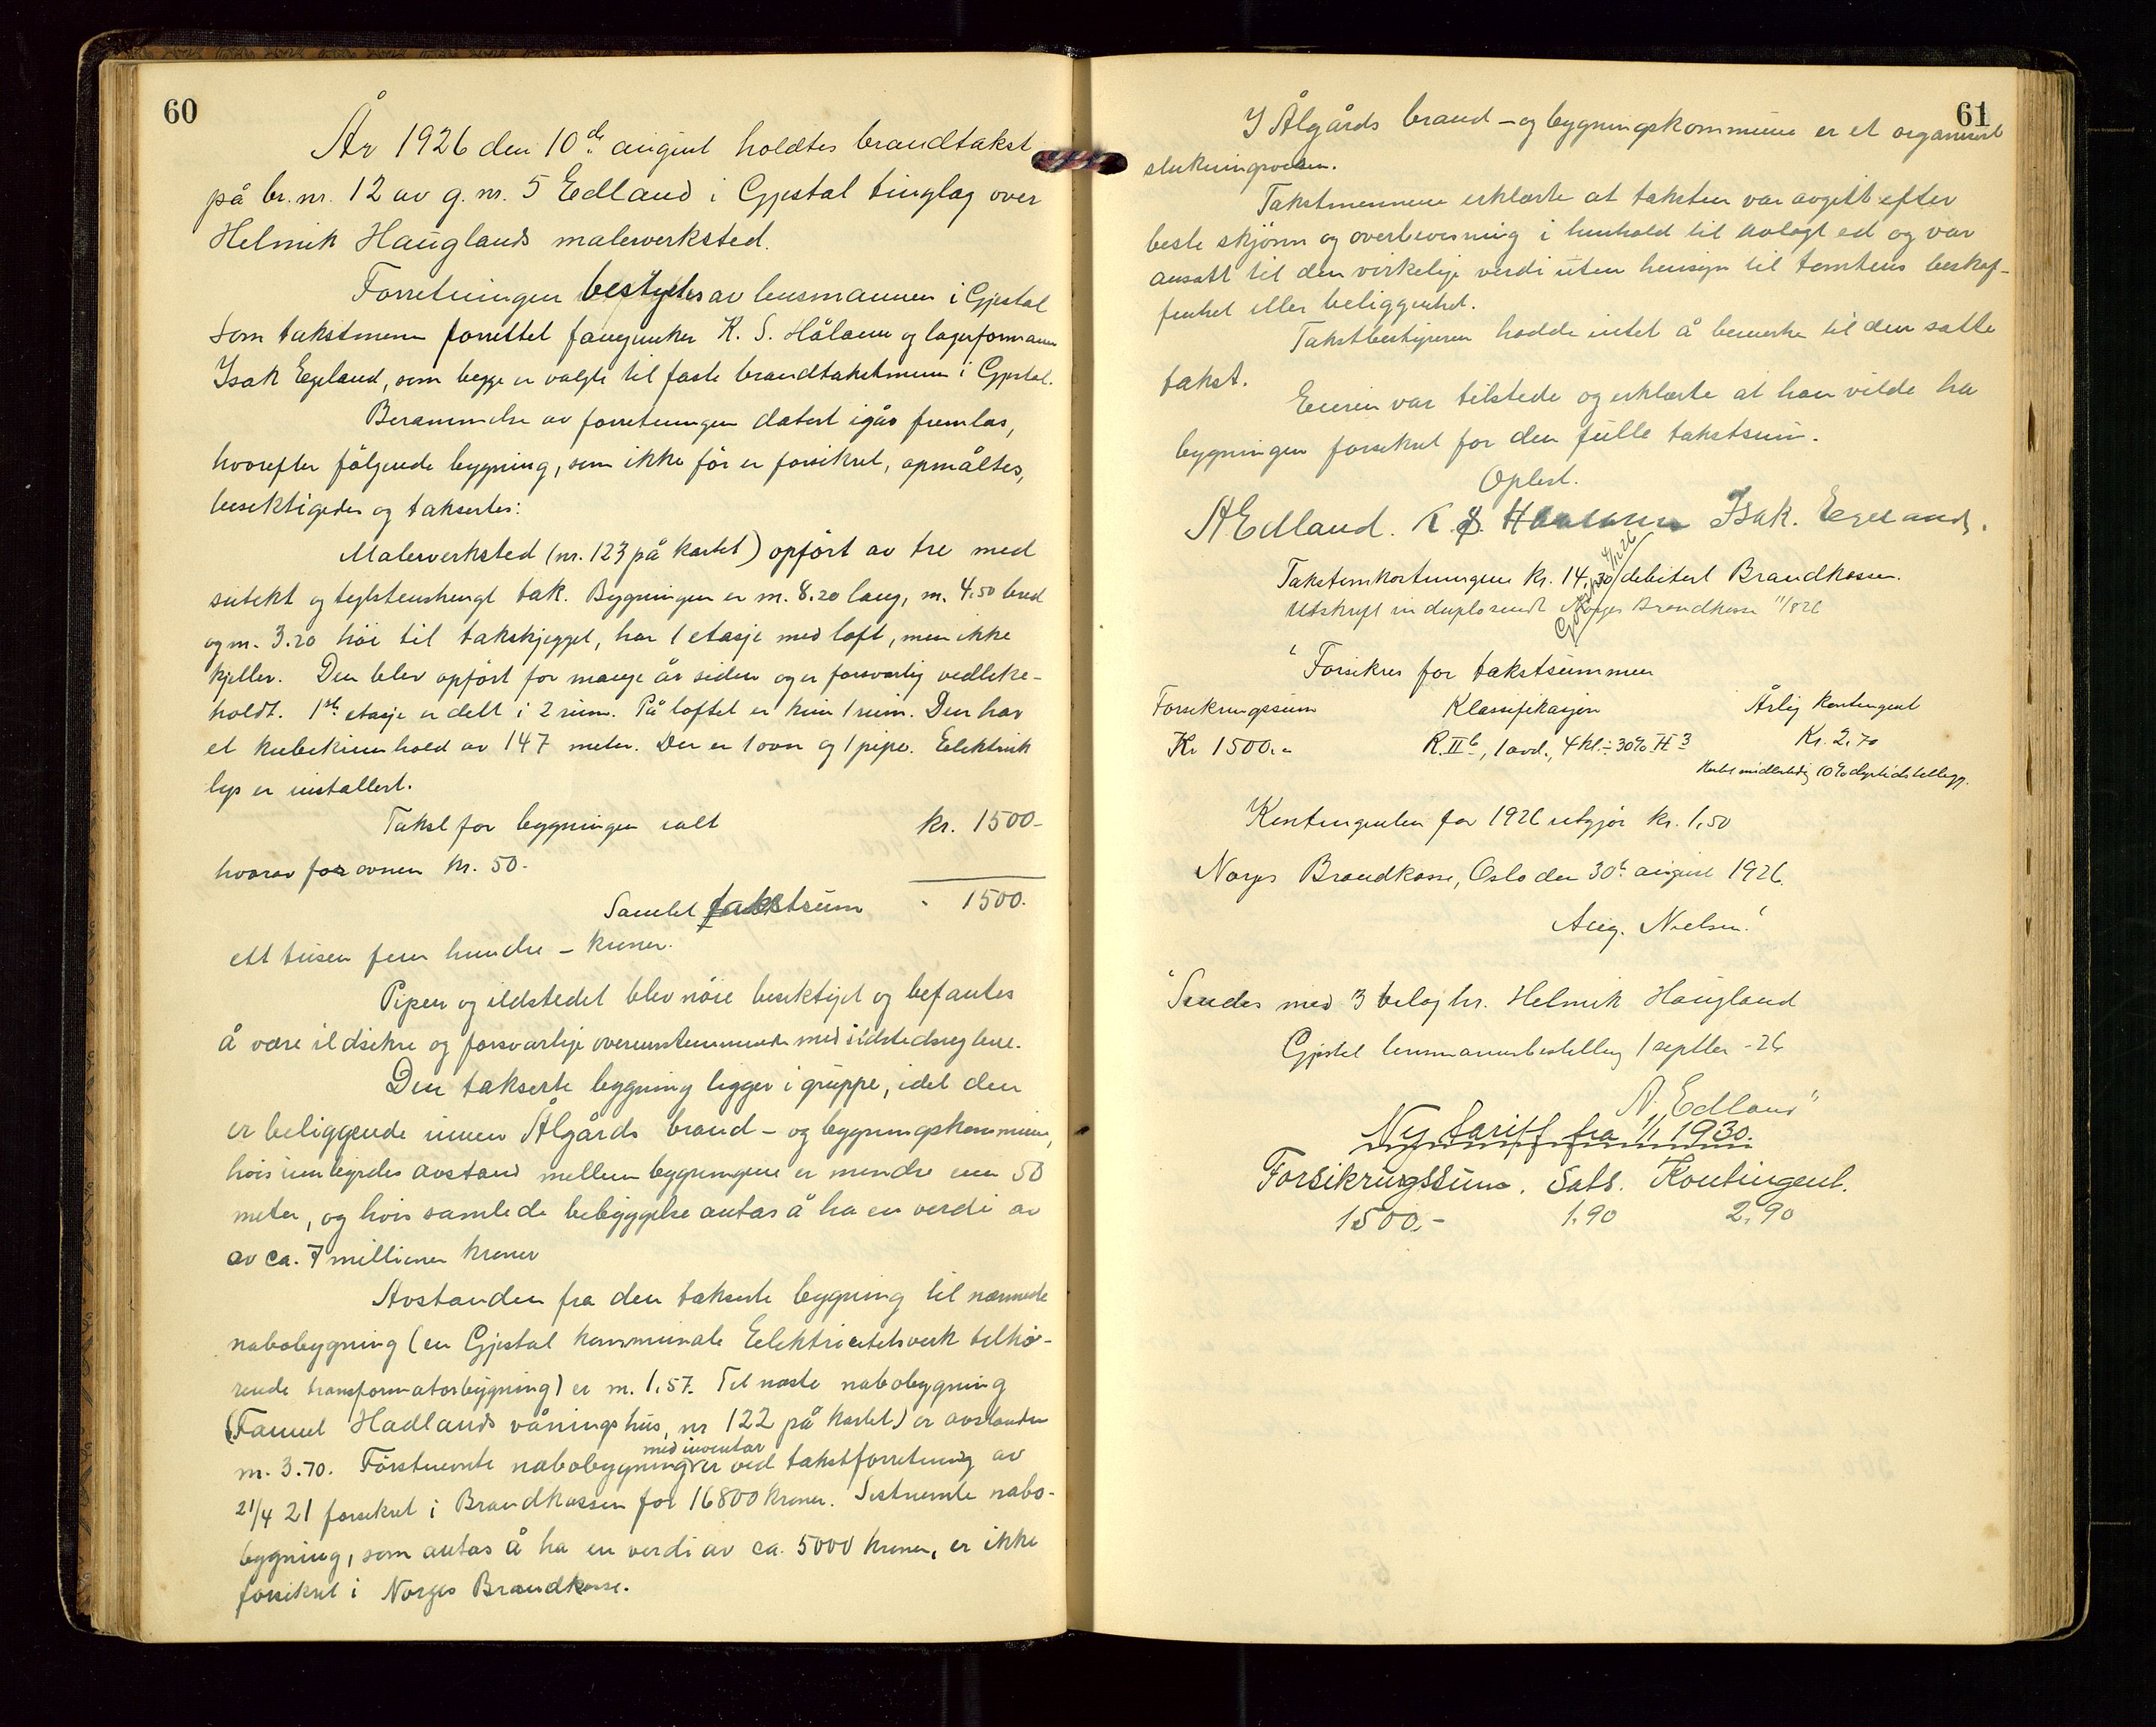 60
År 1926 den 10de august holdtes brandtakst
på br. nr. 12 av g. nr. 5 Edland i Gjestal tinglag over
Helmik Hauglands malerverksted.
Forretningen bestyrtes av lensmannen i Gjestal
Som takstmenn forrettet K. S. Hålann og lagerformann
Isak Egeland, som begge er valgte til faste brandtakstmenn i Gjestal.
Berammelse av forretningen datert igår fremlas,
hvorefter følgende bygning, som ikke før er forsikret, opmåltes,
besiktigedes og taksertes:
Malerverksted (nr. 123 på kartet) opført av tre med
sutekt og teglstenshengt tak. Bygningen er m. 8.20 lang, m. 4.50 bred
og m. 3.20 høi til takskjegget, har 1 etasje med loft, men ikke
kjeller. Den blev opført for mange år siden og er forsvarlig vedlike-
holdt. 1ste etasje er delt i 2 rum. På loftet er kun 1 rum. Den har
et kubikinnhold av 147 meter. Der er 1 ovn og 1 pipe. Elektrisk
lys er installert.
Takst for bygningen ialt kr. 1500-
hvorav for ovnen kr. 50.-
Samlet takstsum " 1500.
ett tusen fem hundre - kroner.
Pipen og ildstedet blev nøie besiktiget og befantes
å være ildsikre og forsvarlige overensstemmende med ildstedsreglene.
Den takserte bygning ligger i gruppe, idet den
er beliggende innen Ålgårds brand- og bygningskommune,
hvis innbyrdes avstand mellem bygningene er mindre enn 50
meter, og hvis samlede bebyggelse antas å ha en verdi av
av ca. 7 millioner kroner
Avstanden fra den takserte bygning til nærmeste
nabobygning (en Gjestal kommunale Eelektricitetsverk tilhø-
rende transformatorbygning) er m. 1,57. Til næste nabobygning
(Hadlands våningshus, nr 122 på kartet) er avstanden
med inventar
m. 3.70. Førstnevnte nabobygning er ved takstforretning av
21/4 21 forsikret i Brandkassen for 16800 kroner. Sistnevnte nabo-
bygning, som antas å ha en verdi av ca. 5000 kroner, er ikke
forsikret i Norges Brandkasse.
61
I Ålgårds brand- og bygningskommune er et organisert
slukningsvesen.
Takstmennene erklærte at taksten var avgitt efter
beste skjønn og overbevisning i henhold til avlagt ed og var
ansatt til den virkelige verdi uten hensyn til tomtens beskaf-
fenhet eller beliggenhet.
Takstbestyreren hadde intet å bemerke til den satte
takst.
Eieren var tilstede og erklærte at han vilde ha
bygningen forsikret for den fulle takstsum.
Oplest.
A Edland. K. S. Haalann Isak. Egeland.
Takstomkostningene kr. 14,30 debitert Brandkassen.
Utskrift in duplo sendt Norges Brandkasse 11/8 26
"Forsikres for takstsummen
Forsikringssum Klassifikasjon Årlig kontingent
Kr 1500.- R. IIb, 1 avd., 4 kl. ÷ 30% H 3 Kr. 2.70
midlertidig 10% dyrtidstillegg.
Kontingenten for 1926 utgjør kr. 1,50
Norges Brandkasse, Oslo den 30te august 1926.
Aug. Nielsen."
"Sendes med 3 bilag hr. Helmik Haugland
Gjestal lensmannsbestilling 1 septbr -26
A. Edland"
Ny tariff fra 1/1 1930.
Forsikringssum. Sats. Kontingent.
1500.- 1.90 2.90